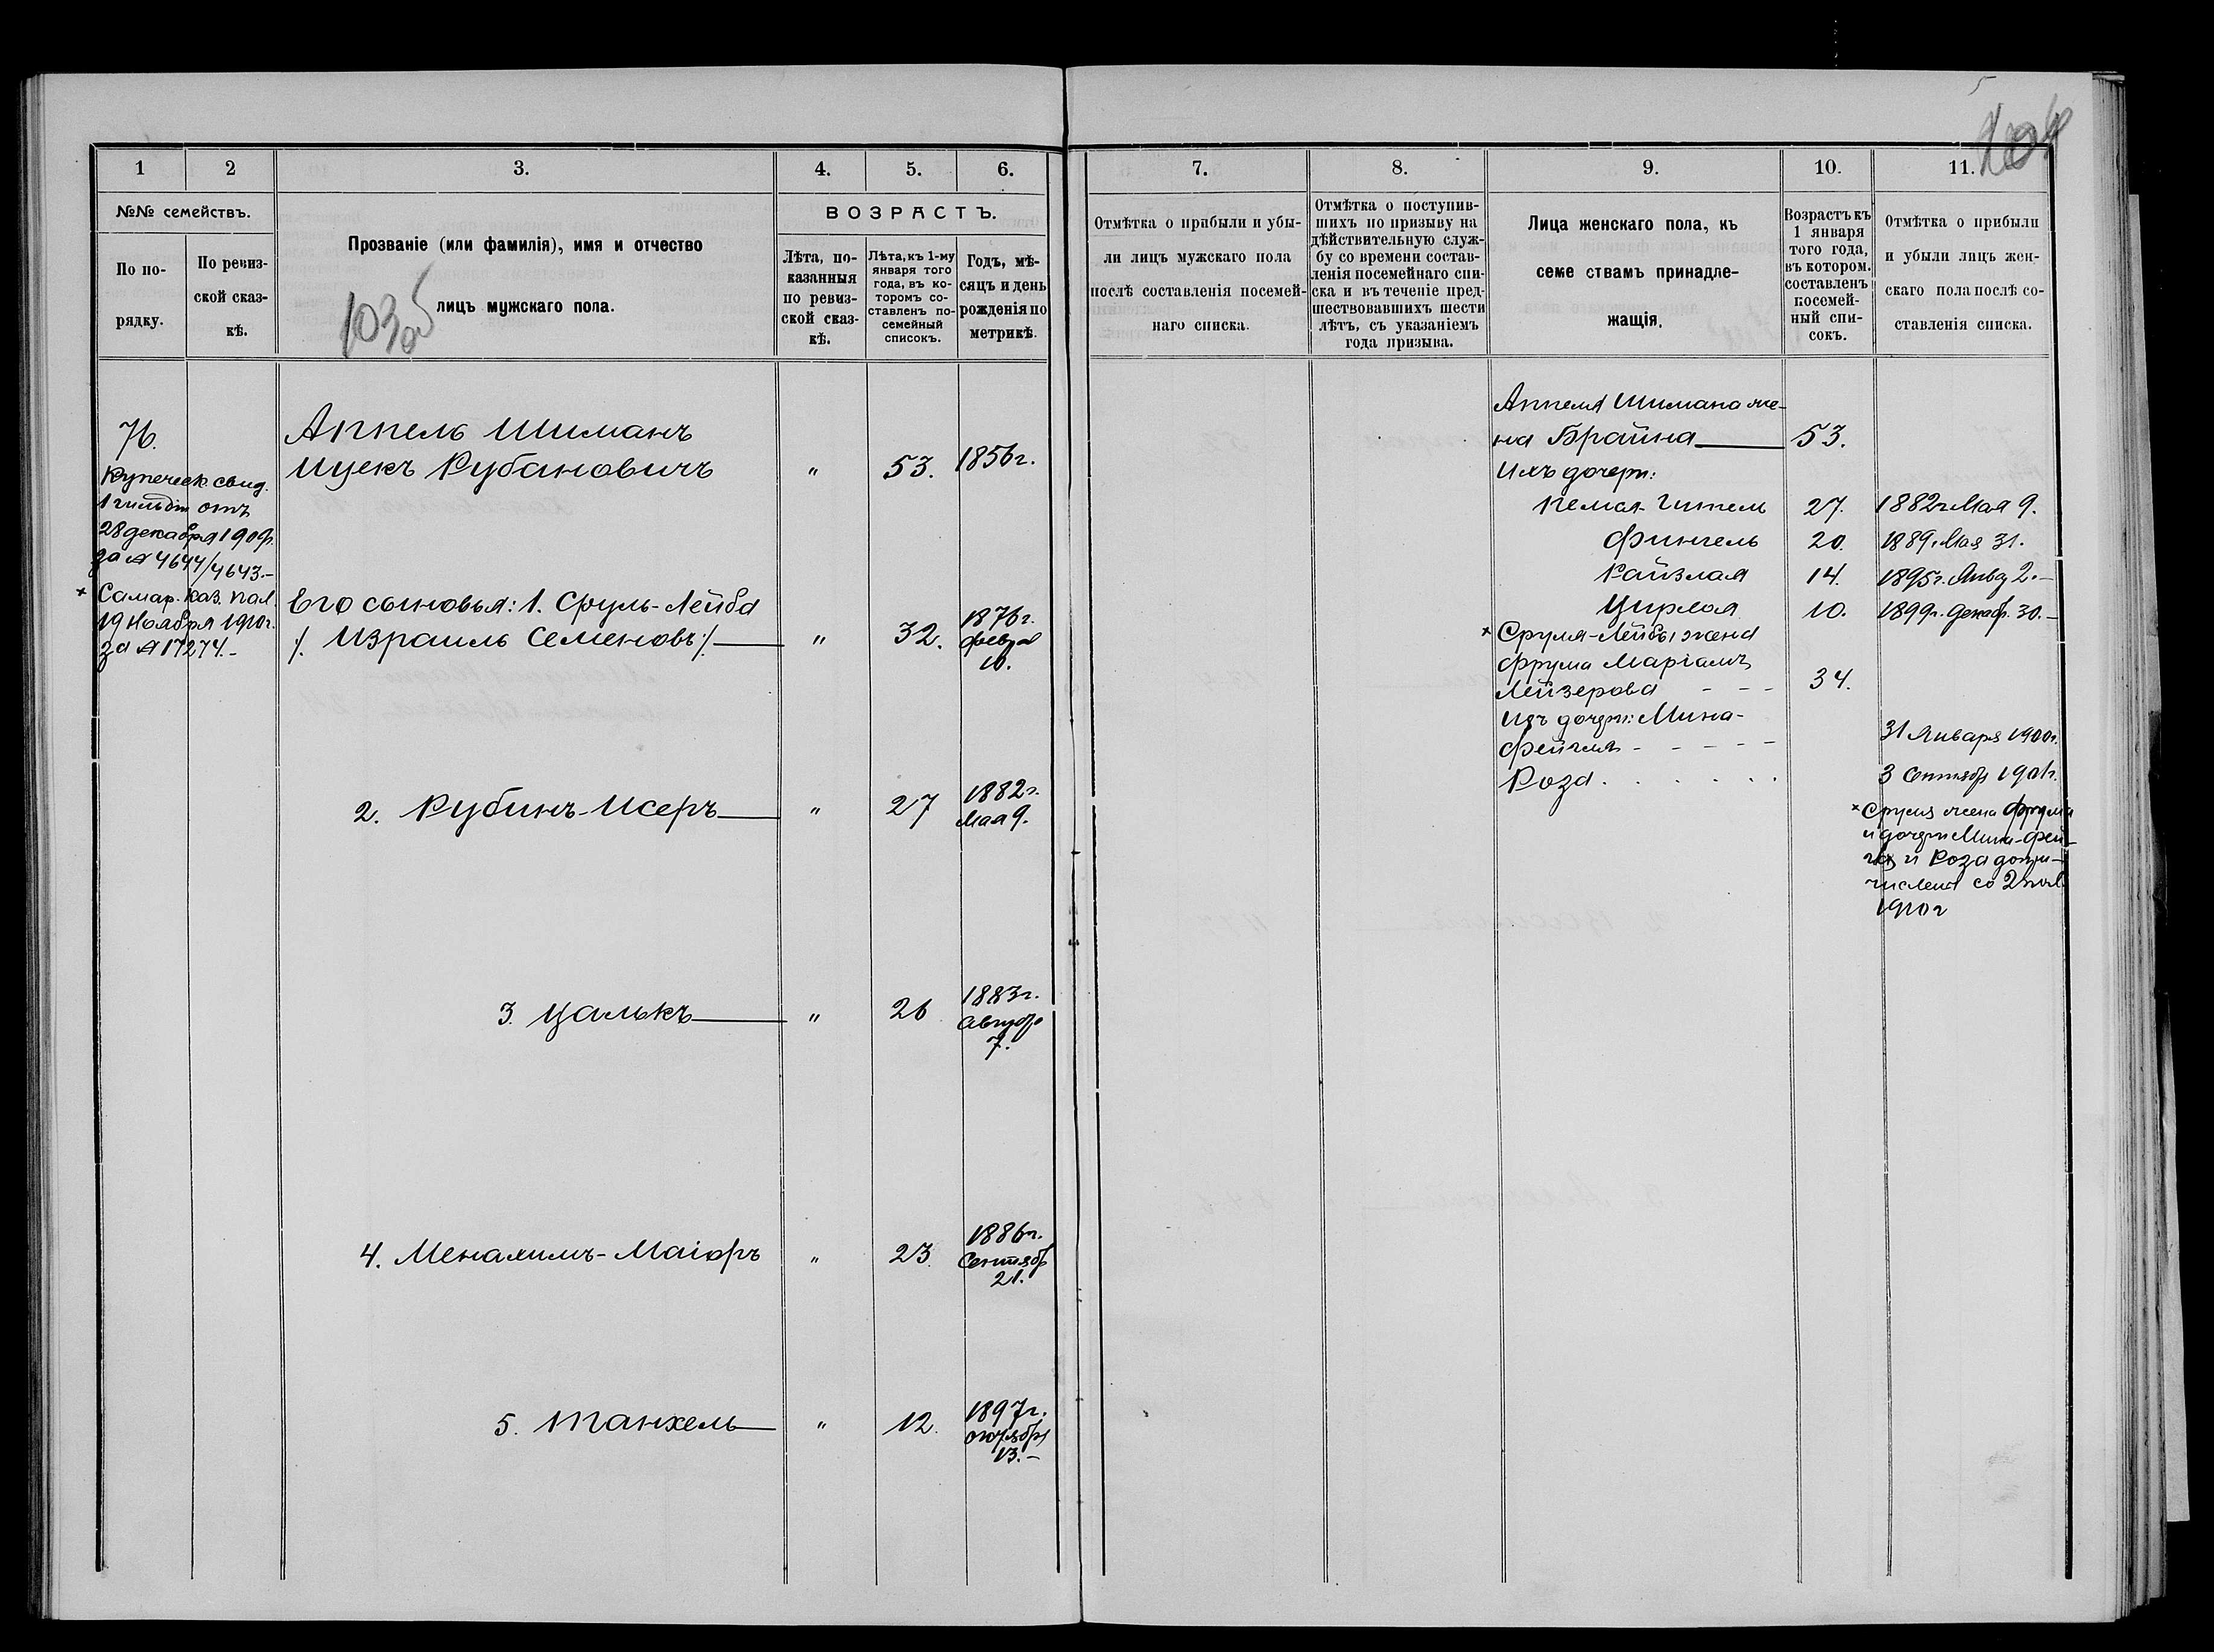 104
1
2
3.
4.
5.
6.
№№ семействъ.
По по-
рядку.
По ревиз-
ской сказ-
кѣ.
Прозваніе (или фамилія), имя и отчество
лицъ мужскаго пола.
103 об
ВОЗРАСТЪ.
Лѣта, по-
казанныя
по ревиз-
ской сказ-
кѣ.
Лѣта, къ 1-му
января того
года, въ ко-
торомъ со-
ставленъ по-
семейный
списокъ.
Годъ, мѣ-
сяцъ и день
рожденія по
метрикѣ.
76.
Купеческ. свид.
1 гильдіи отъ
28 декабря 1909г.
за № 4644/4643.-
× Самар. Каз. Пал.
19 Ноября 1910г.
за № 17274.-
Аппель Шиманъ
Ицекъ Рубановичъ " 53. 1856г.
Его сыновья: 1. Сруль-Лейба
/. Израиль Семеновъ ./ " 32. 1876г.
феврал
10.
2. Рубинъ-Исеръ " 27 1882г.
Мая 9.
3. Цалькъ " 26 1883г.
Август
7.
4. Менахимъ-Маіоръ " 23. 1886г.
Сентяб
21.
5. Танхель " 12. 1897г.
октября
13.-
7.
8.
9.
10.
11.
Отмѣтка о прибыли и убы-
ли лицъ мужскаго пола
послѣ составленія посемей-
наго списка.
Отмѣтка о поступив-
шихъ по призыву на
дѣйствительную служ-
бу со времени состав-
ленія посемейнаго спи-
ска и въ теченіе пред-
шествовавшихъ шести
лѣтъ, съ указаніемъ
года призыва.
Лица женскаго пола, къ
семе ствамъ принадле-
жащія.
Возрастъ къ
1 января
того года,
въ котором.
составленъ
посемей-
ный спи-
сокъ.
Отмѣтка о прибыли
и убыли лицъ жен-
скаго пола послѣ со-
ставленія списка.
Аппеля Шимана же-
на Брайна 53.
Ихъ дочери:
Гитель 27. 1882г Мая 9.
Фингель 20. 1889г. Мая 31.
Райзлая 14. 1895г. Янва 2.-
Цирлая 10. 1899г. Декаб. 30.-
× Сруля-Лейбы жена
Фрума Маріамъ
Лейзерова - - - 34.
Ихъ дочери: Мина-
Фейгля - - - - - 31 Января 1900г.
Роза . . . . . . 3 Сентяб 1901г.
× Сруля жена Фрума
и дочери Мина-Фей-
гля и Роза допри-
числена со 2 пол.
1910г